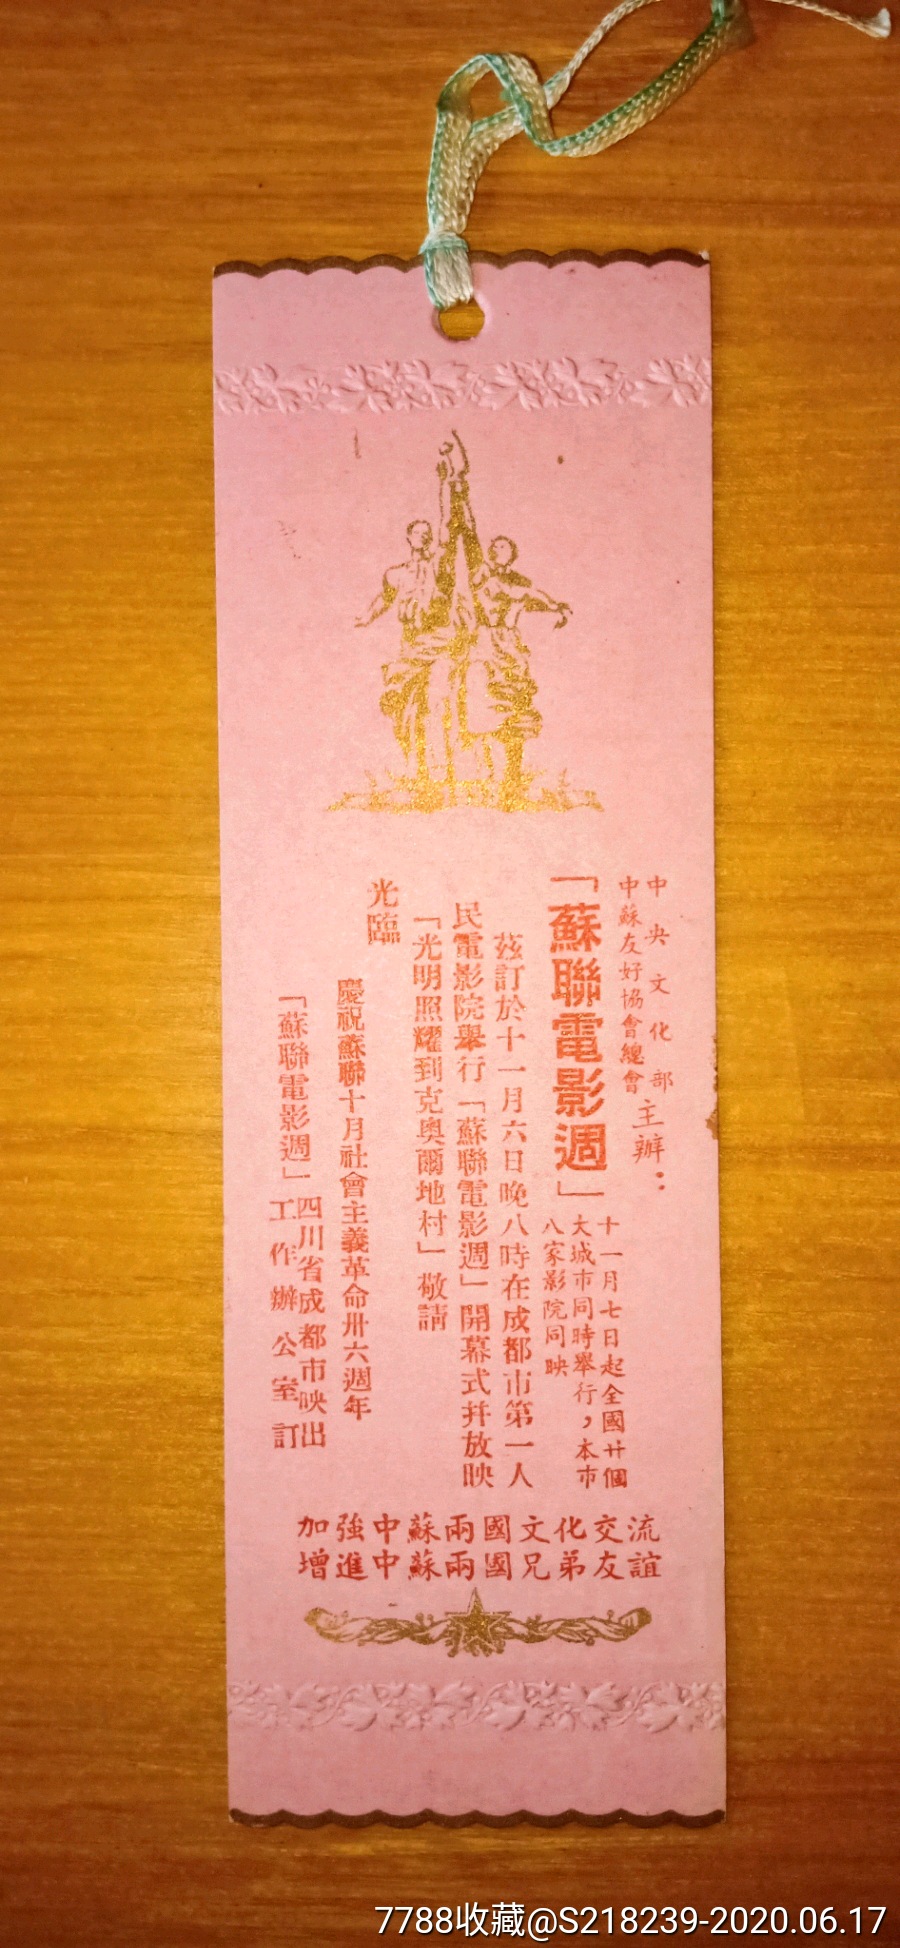 中央文化部
中蘇友好協會總會
主辦：
「蘇聯電影週」
十一月七日起全國廿個
大城市同時舉行，本市
八家影院同映
茲訂於十一月六日晚八時在成都市第一人
民電影院舉行「蘇聯電影週」開幕式幷放映
「光明照耀到克奧爾地村」敬請
光臨
慶祝蘇聯十月社會主義革命卅六週年
「蘇聯電影週」
四川省成都市映出
工作辦公室訂
加強中蘇兩國文化交流
增進中蘇兩國兄弟友誼
7788收藏@S218239-2020.06.17